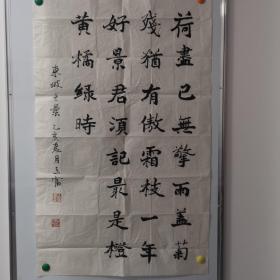 荷盡已無擎雨蓋菊
殘猶有傲霜枝一年
好景君須記最是橙
黄橘緑時
東坡
乙亥
月